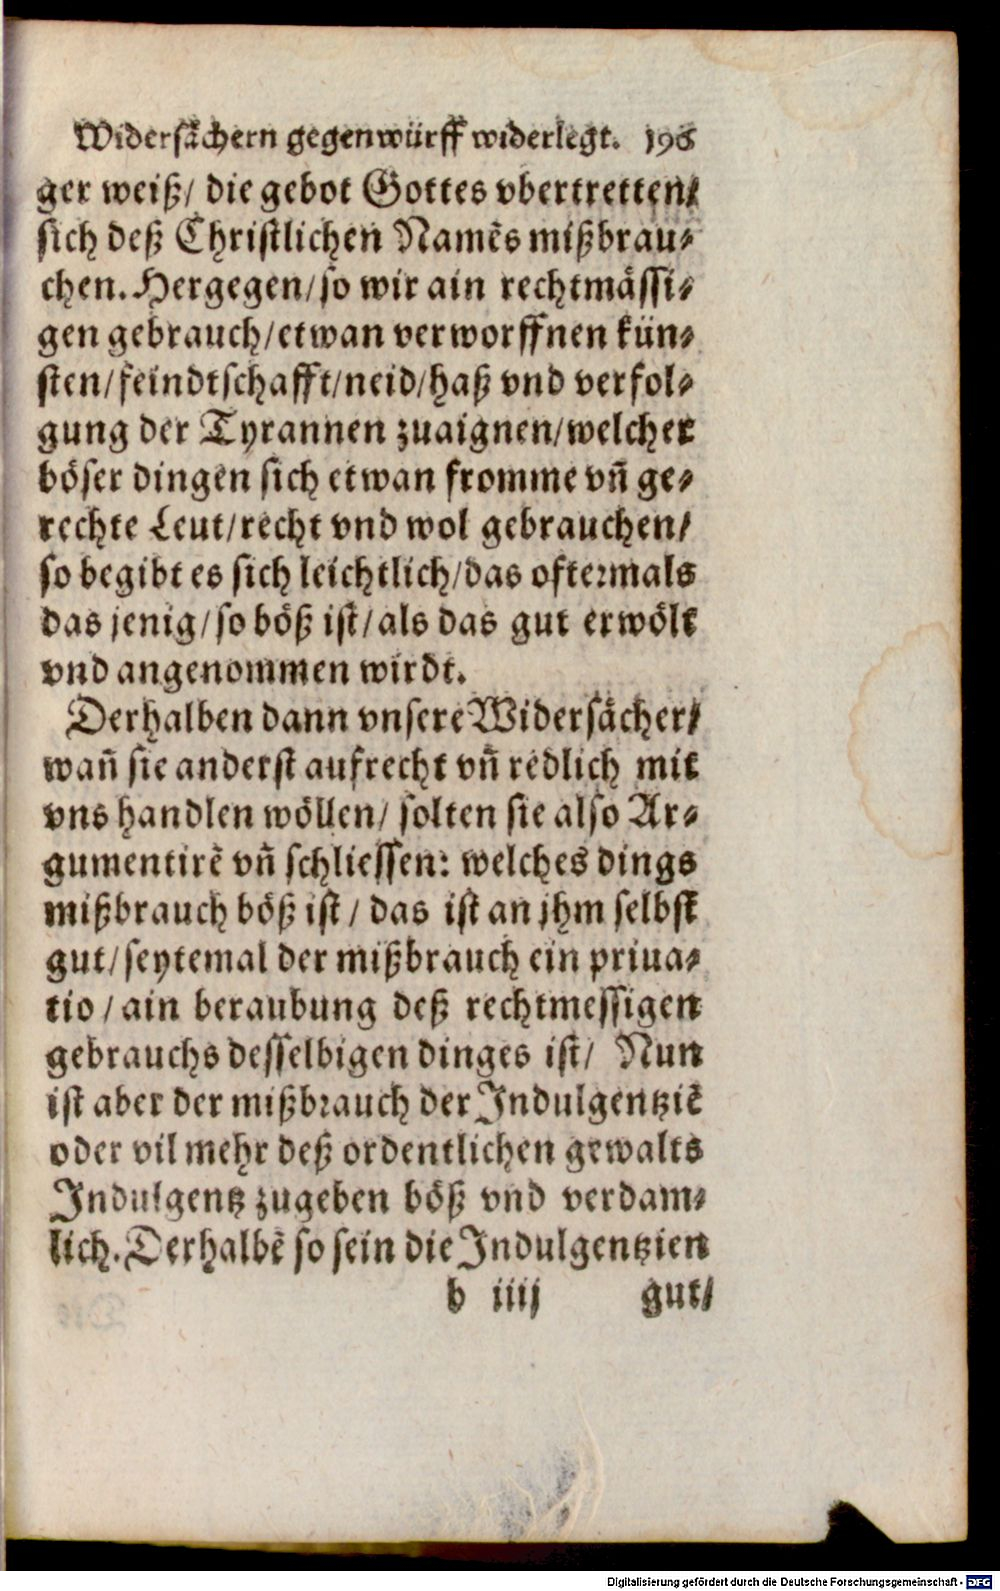 Widersächern gegenwürff widerlegt. 196
ger weiß/ die gebot Gottes vbertretten/
sich deß Christlichen Namẽs mißbrau⸗
chen. Hergegen/so wir ain rechtmässi⸗
gen gebrauch/etwan verworffnen kün⸗
sten/feindtschafft/neid/haß vnd verfol⸗
gung der Tyrannen zuaignen/welcher
böser dingen sich etwan fromme vñ ge⸗
rechte Leut/recht vnd wol gebrauchen/
so begibt es sich leichtlich/das oftermals
das jenig/so böß ist/als das gut erwölt
vnd angenommen wirdt.
Derhalben dann vnsere Widersächer/
wañ sie anderst aufrecht vñ redlich mit
vns handlen wöllen/ solten sie also Ar⸗
gumentirẽ vñ schliessen: welches dings
mißbrauch böß ist/ das ist an jhm selbst
gut/seytemal der mißbrauch ein priua⸗
tio/ain beraubung deß rechtmessigen
gebrauchs desselbigen dinges ist/ Nun
ist aber der mißbrauch der Indulgentziẽ
oder vil mehr deß ordentlichen gewalts
Indulgentz zugeben böß vnd verdam⸗
lich. Derhalbẽ so sein die Indulgentzien
b iiij gut/
Digitalisierung gefördert durch die Deutsche Forschungsgemeinschaft - DFG